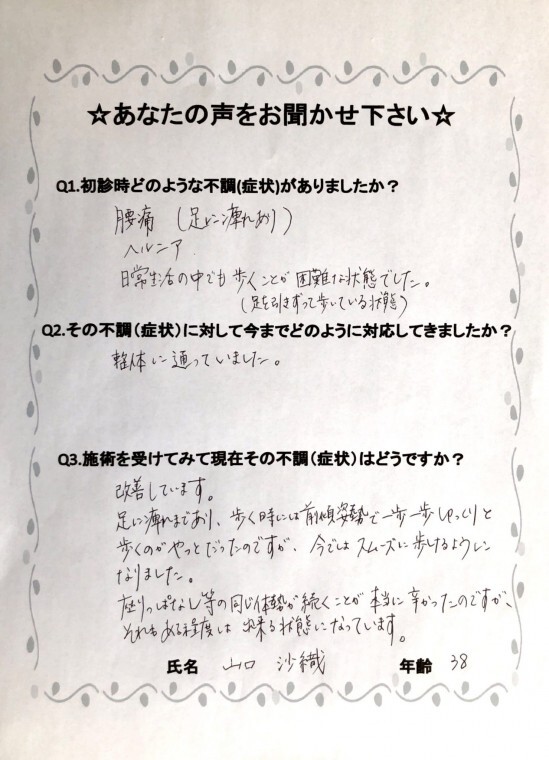 ☆あなたの声をお聞かせ下さい☆
Q1.初診時どのような不調(症状)がありましたか？
腰痛 (足に痺れあり)
ヘルニア
日常生活の中でも歩くことが困難な状態でした。
(足を引きずって歩いている状態)
Q2.その不調（症状）に対して今までどのように対応してきましたか？
整体に通っていました。
Q3.施術を受けてみて現在その不調（症状）はどうですか？
改善しています。
足に痺れまであり、歩く時には前傾姿勢で一歩一歩ゆっくりと
歩くのがやっとだったのですが、今ではスムーズに歩けるように
なりました。
座りっぱなし等の同じ体勢が続くことが本当に辛かったのですが、
それもある程度は出来る状態になっています。
氏名 山口 沙織 年齢 38